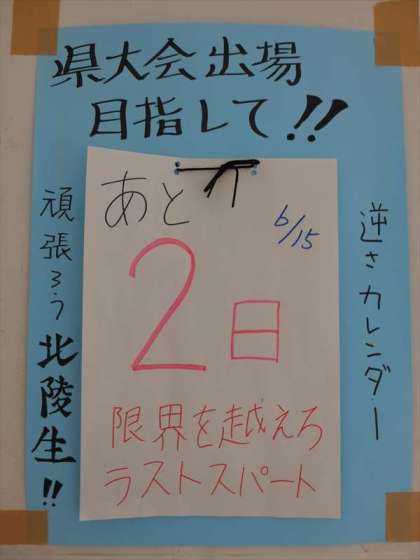 県大会出場
目指して!!
あと
6/15
2日
限界を越えろ
ラストスパート
逆さカレンダー
頑張ろう北陵生!!